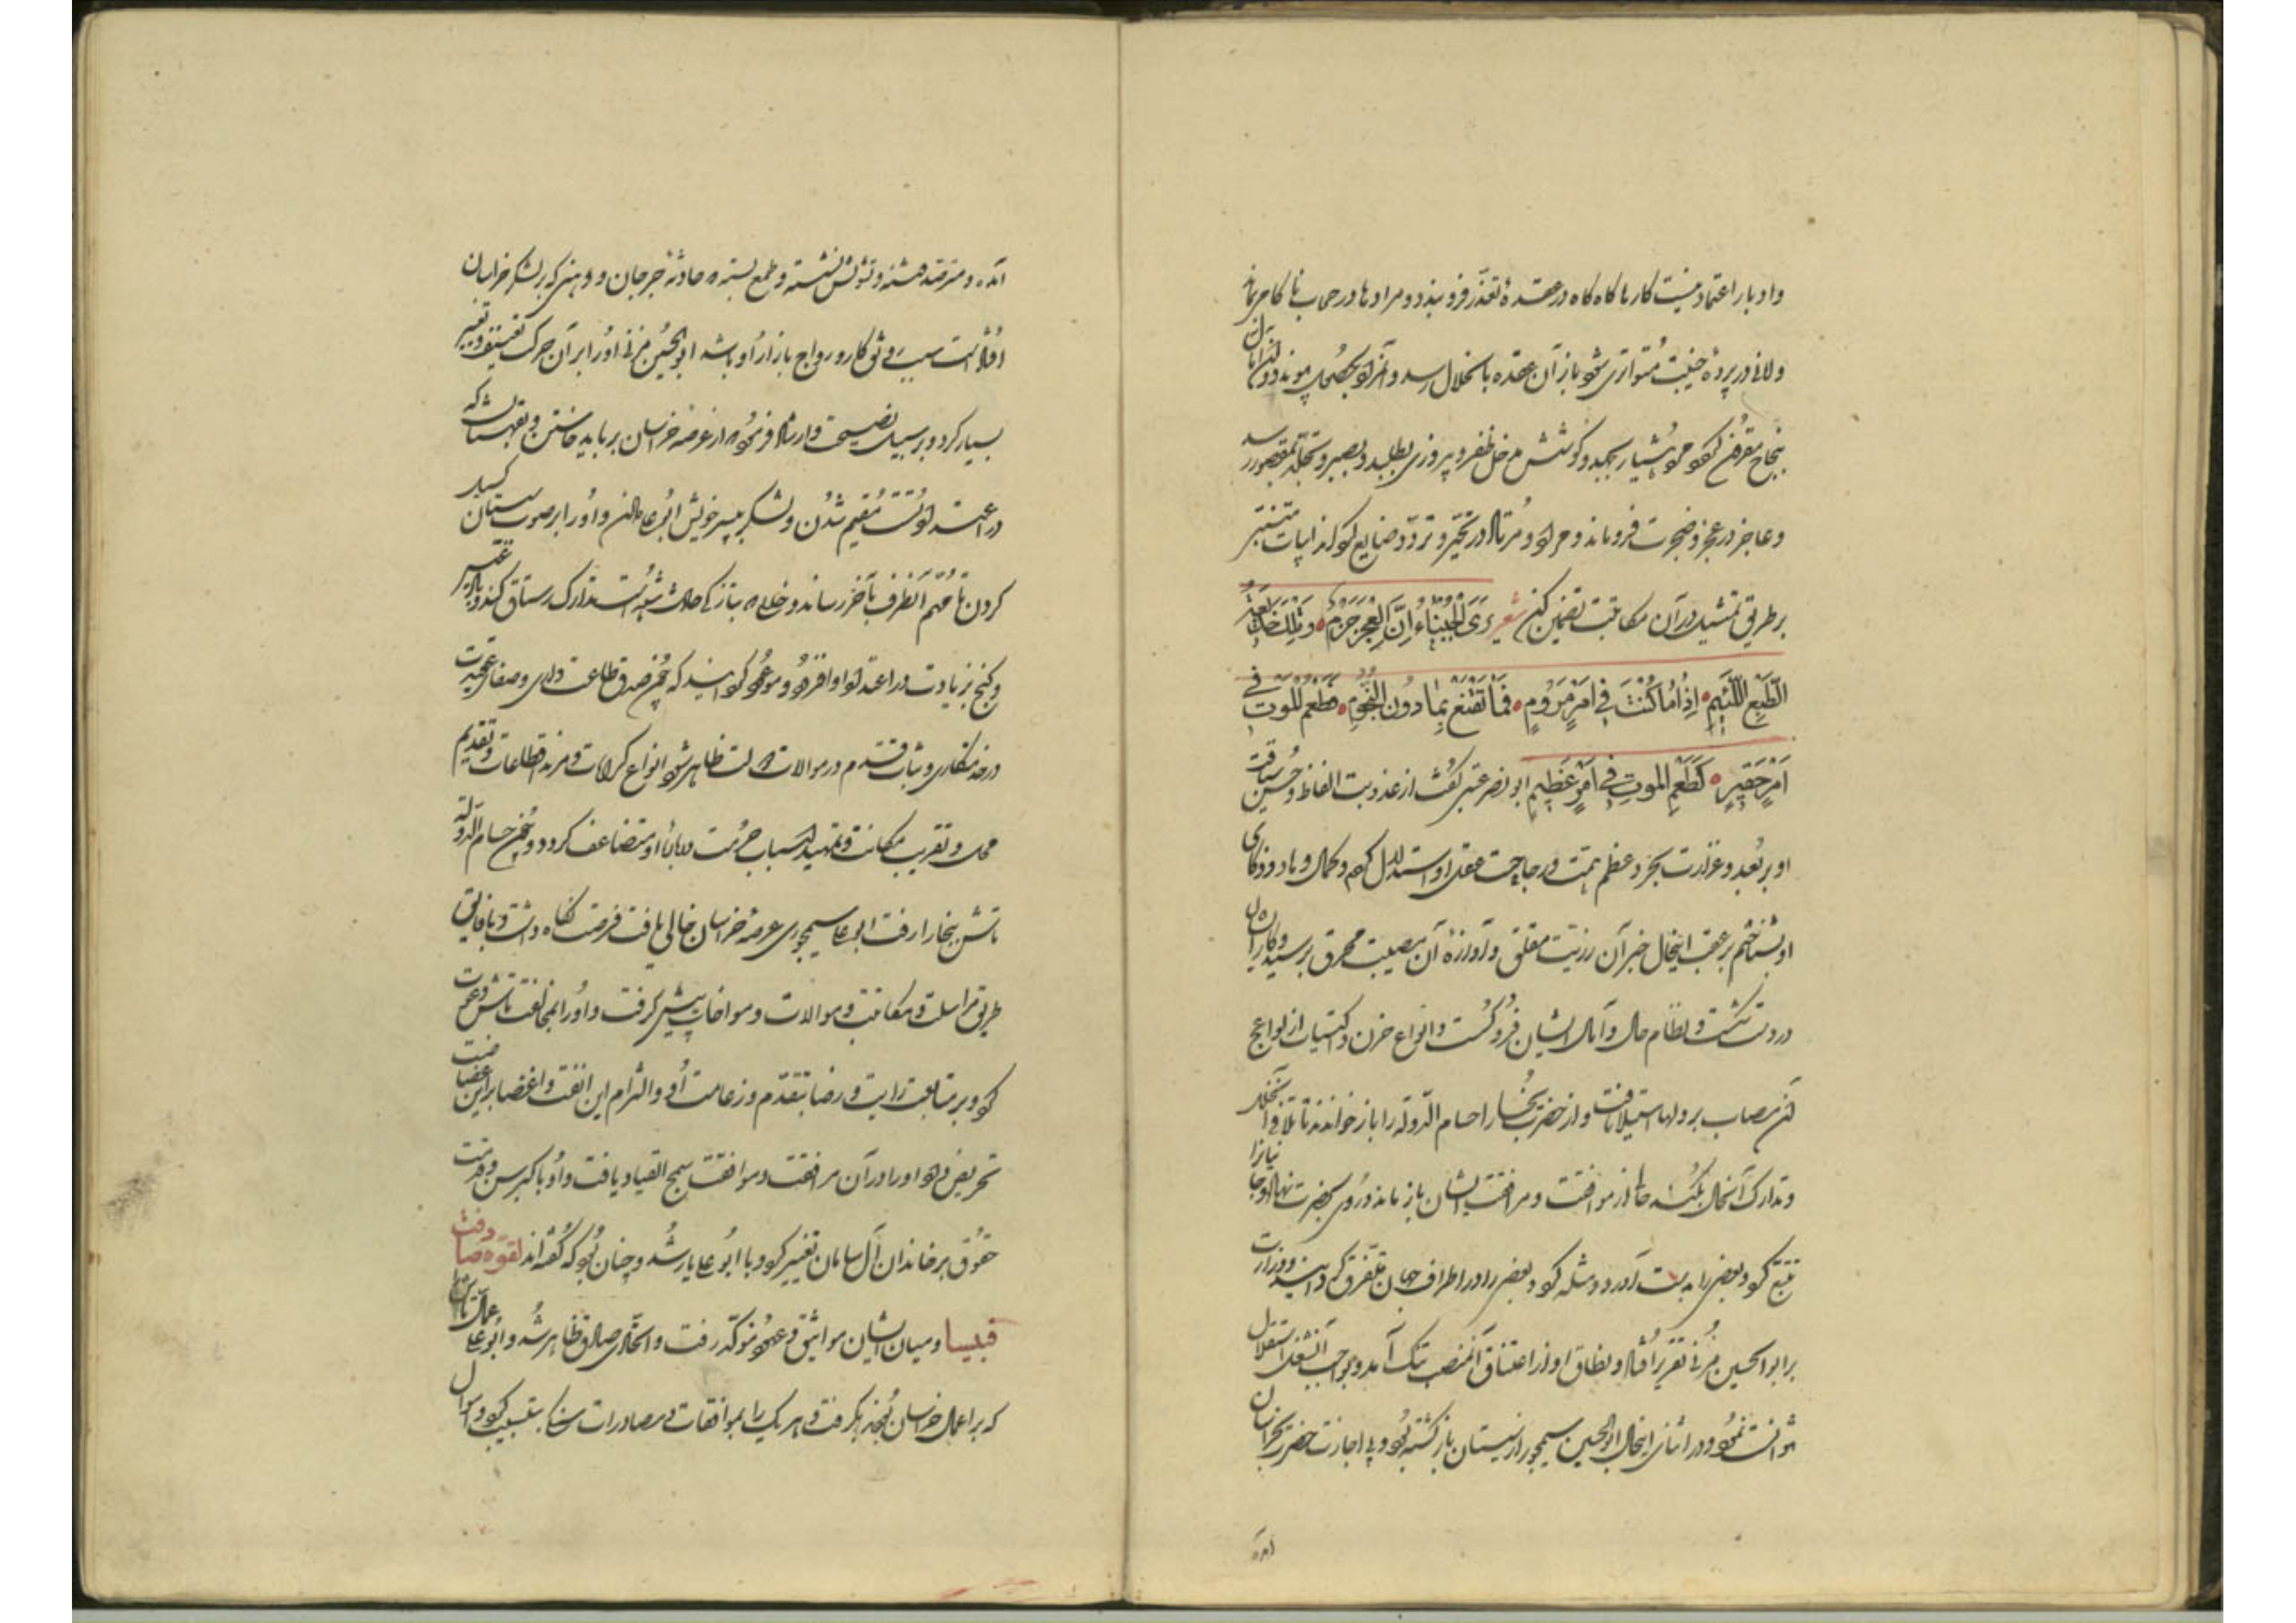 و ادبار اعتماد نیست کارها کاه کاه در عقدهٔ تعذر فرو بندد و مرادها در حجاب ناکامی بماند
ولانی در پردهٔ خیبت متواری شود باز آن عقده بانحلال رسد و آن مراد بحصول پیوندد و آن
بنجاح مقرون کردد مرد هشیار بجد و کوشش مدخل ظفر و پیروزی بطلبد و بصبر و تجلد بمقصود رسد
و عاجز در عجز و ضجرت فرو ماند و مراد در تحیر و تردد ضایع کرداند ابیات متنبی
بر طریق تمثیل در آن مکاتبت تضمین کن شعر یری الجبناء ان العجز حزم وتلک خدیعة
الطبع اللئیم اذا ما کنت فی امر مروم فما تقنع بما دون النجوم فطعم الموت فی
امر حقیر کطعم الموت فی امر عظیم ابو نصر عتبی کفت از عذوبت الفاظ و حسن سیاقت
او بر بعد و غزارت بحر و عظم همت و رجاحت عقل او استدلال کردم و کمال و داد و ذکای
او بشناختم بر عقب این حال خبر آن رزیت مقلق و آوازهٔ آن مصیبت محرق برسید و کار آن
دولت بکشت و نظام حال و آمال ایشان فرو کسست و انواع حزن و اکتیاب از لواعج
آن مصاب بر دلها استیلا یافت و از حضرت بخارا حسام الدوله را باز خواندند تا تلافی آن خلل
و تدارک آن حال بکند حالی از موافقت و مرافقت ایشان باز ماند و روی بحضرت نهاد و جانیانرا
تتبع کرد و بعضی را بدست آورد و مثله کرد و بعضی را در اطراف جهان متفرق کردانید و وزارت
بر ابو الحسین مزنی تقریر افتاد و نطاق او از اعتناق آن منصب تنک آمد و بواجب آن شغل استقلال
نتوانست نمود و در اثنای این حال ابو الحسین سیمجور از سیستان باز کشته بود و بی اجازت حضرت بخراسان
آمده
آمده و مترصد فتنه و تشویش نشسته و طمع بسته که حادثهٔ جرجان و وهنی که بر لشکر خراسان
افتاده است سبب رونق کار و رواج بازار او باشد ابو الحسین مزنی او را بر آن حرکت تعنیف و تعییر
بسیار کرد و بر سبیل نصیحت و ارشاد فرمود که از عرصه خراسان بر باید خاستن و بقهستان که
در اعتداد تست مقیم شدن و لشکر بپسر خویش ابو علی دادن و او را بر صوب سیستان کسیل
کردن تا مهم آن طرف بآخر رساند و خللی که بتازکی حادث شده است تدارک رستاق کند و بادغیس
و کنج بزیادت در اعتداد او افزود و موعود کردانید که چون صدق طاعت داری و صفای عقیدت
در خدمتکاری و ثبات قدم در موالات دولت ظاهر شود انواع کرامات و مزید اقطاعات و تقدیم
محل و تقریب مکانت و تمهید اسباب حرمت در باب او متضاعف کردد و چون حسام الدوله
تاش ببخارا رفت ابو علی سیمجوری عرصهٔ خراسان خالی یافت فرصت نکاه داشت و با فایق
طریق مراسلت و مکاتبت و موالات و مواخات پیش کرفت و او را بمخالفت تاش دعوت
کرد و بر متابعت رایت و رضا بتقدم و زعامت او و التزام این انفت و اغضا بر این غضاضت
تحریض داد و او را در آن مرافقت و موافقت سمح القیاد یافت و او با کبر سن و قدمت
حقوق بر خاندان آل سامان تغییر کرد و با ابو علی یار شد و چنان بود که کفته اند لقوة صادفت
قبیسا و میان ایشان مواثیق و عهود موکد رفت و اتحادی صادق ظاهر شد و ابو علی عمال تاش را
که بر اعمال خراسان بودند بکرفت و هر یک را بموافقات و مصادرات سنکین تعذیب کرد و اموال